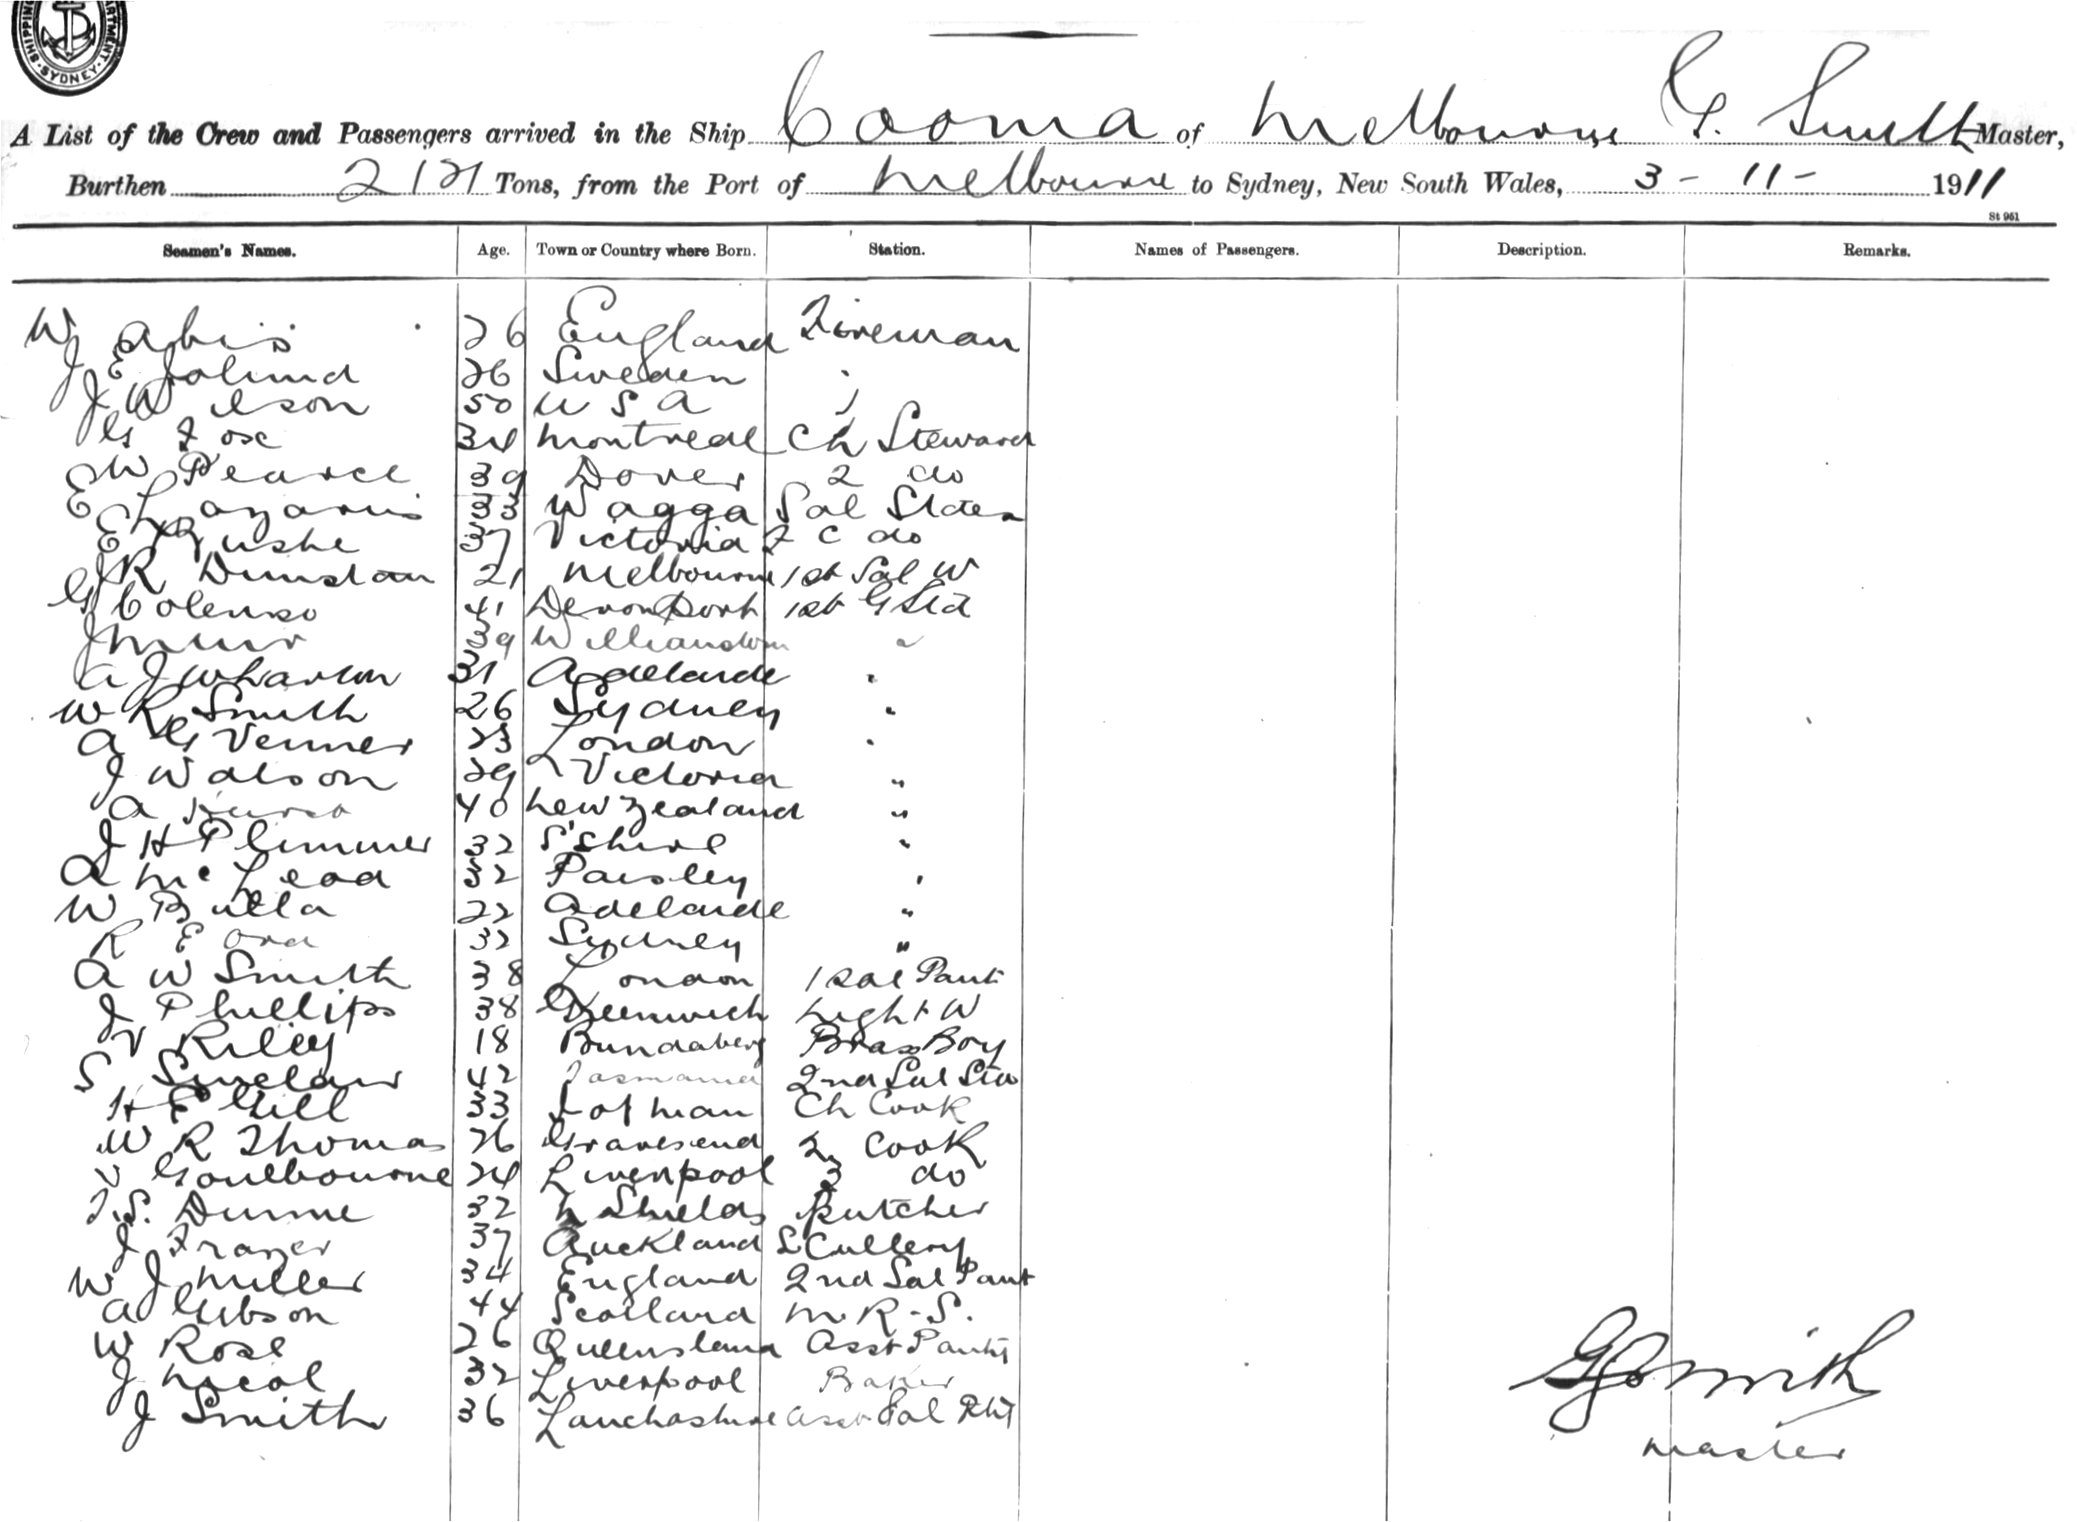 SHIPPING DEPARTMENT. SYDNEY.
A List of the Crew and Passengers arrived in the Ship Cooma of Melbourne G. Smith Master,
Burthen Tons, from the Port of Melbourne to Sydney, New South Wales, 3 - 11 - 1911
St 961
Seamen's Names. Age. Town or Country where Born. Station. Names of Passengers. Description. Remarks.
W 26 England Fireman
J E 26 Sweden "
J Wilson 50 U S A "
G 34 Montreal Ch Steward
W Pearce 39 Dover 2 do
E Lazarus 33 Wagga Sal
E 37 Victoria F C do
J R Dunstan 21 Melbourne 1st Sal W
G Colenso 41 Devonport 1st G Std
J Muir 39 Williamstown "
A J Wharton 31 Adelaide "
W R Smith 26 Sydney "
A G Venner 23 London "
J Watson 29 Victoria "
A 40 New Zealand "
J H Plimmer 32 S'Shire "
A McLeod 32 Paisley "
W 22 Adelaide "
R E Ord 32 Sydney "
A W Smith 38 London 1 Sal Pant
J Phillips 38 Greenwich Night W
V Riley 18 Bundaberg Brass Boy
S Sinclair 42 Tasmania 2nd Sal Std
H E Gill 33 I of Man Ch Cook
W R Thomas 26 Gravesend 2 Cook
V Goulbourne 24 Liverpool 3 do
T. S. Dunne 32 N Shields Butcher
J Frazer 37 Auckland S Cullery
W J Miller 34 England 2nd Sal Pant
A Gibson 44 Scotland M R - S.
W Rose 26 Queensland Asst Pantr
J Nicol 32 Liverpool Baker
J Smith 36 Lanchashire Asst Sal
G Smith
Master